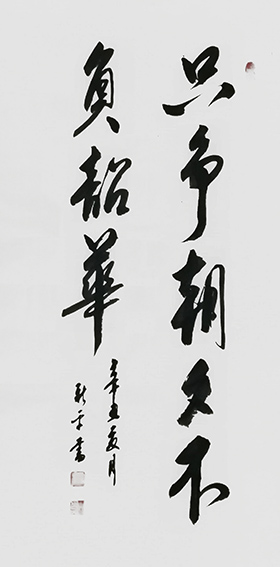 只争朝夕不
負韶華
辛丑夏月
新平書